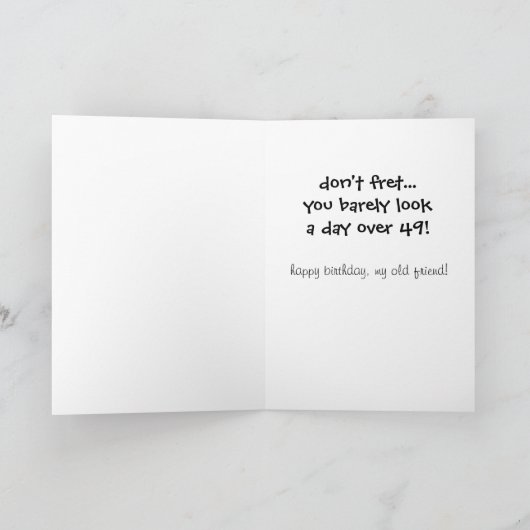 don't fret...
you barely look
a day over 49!
happy birthday, my old friend!